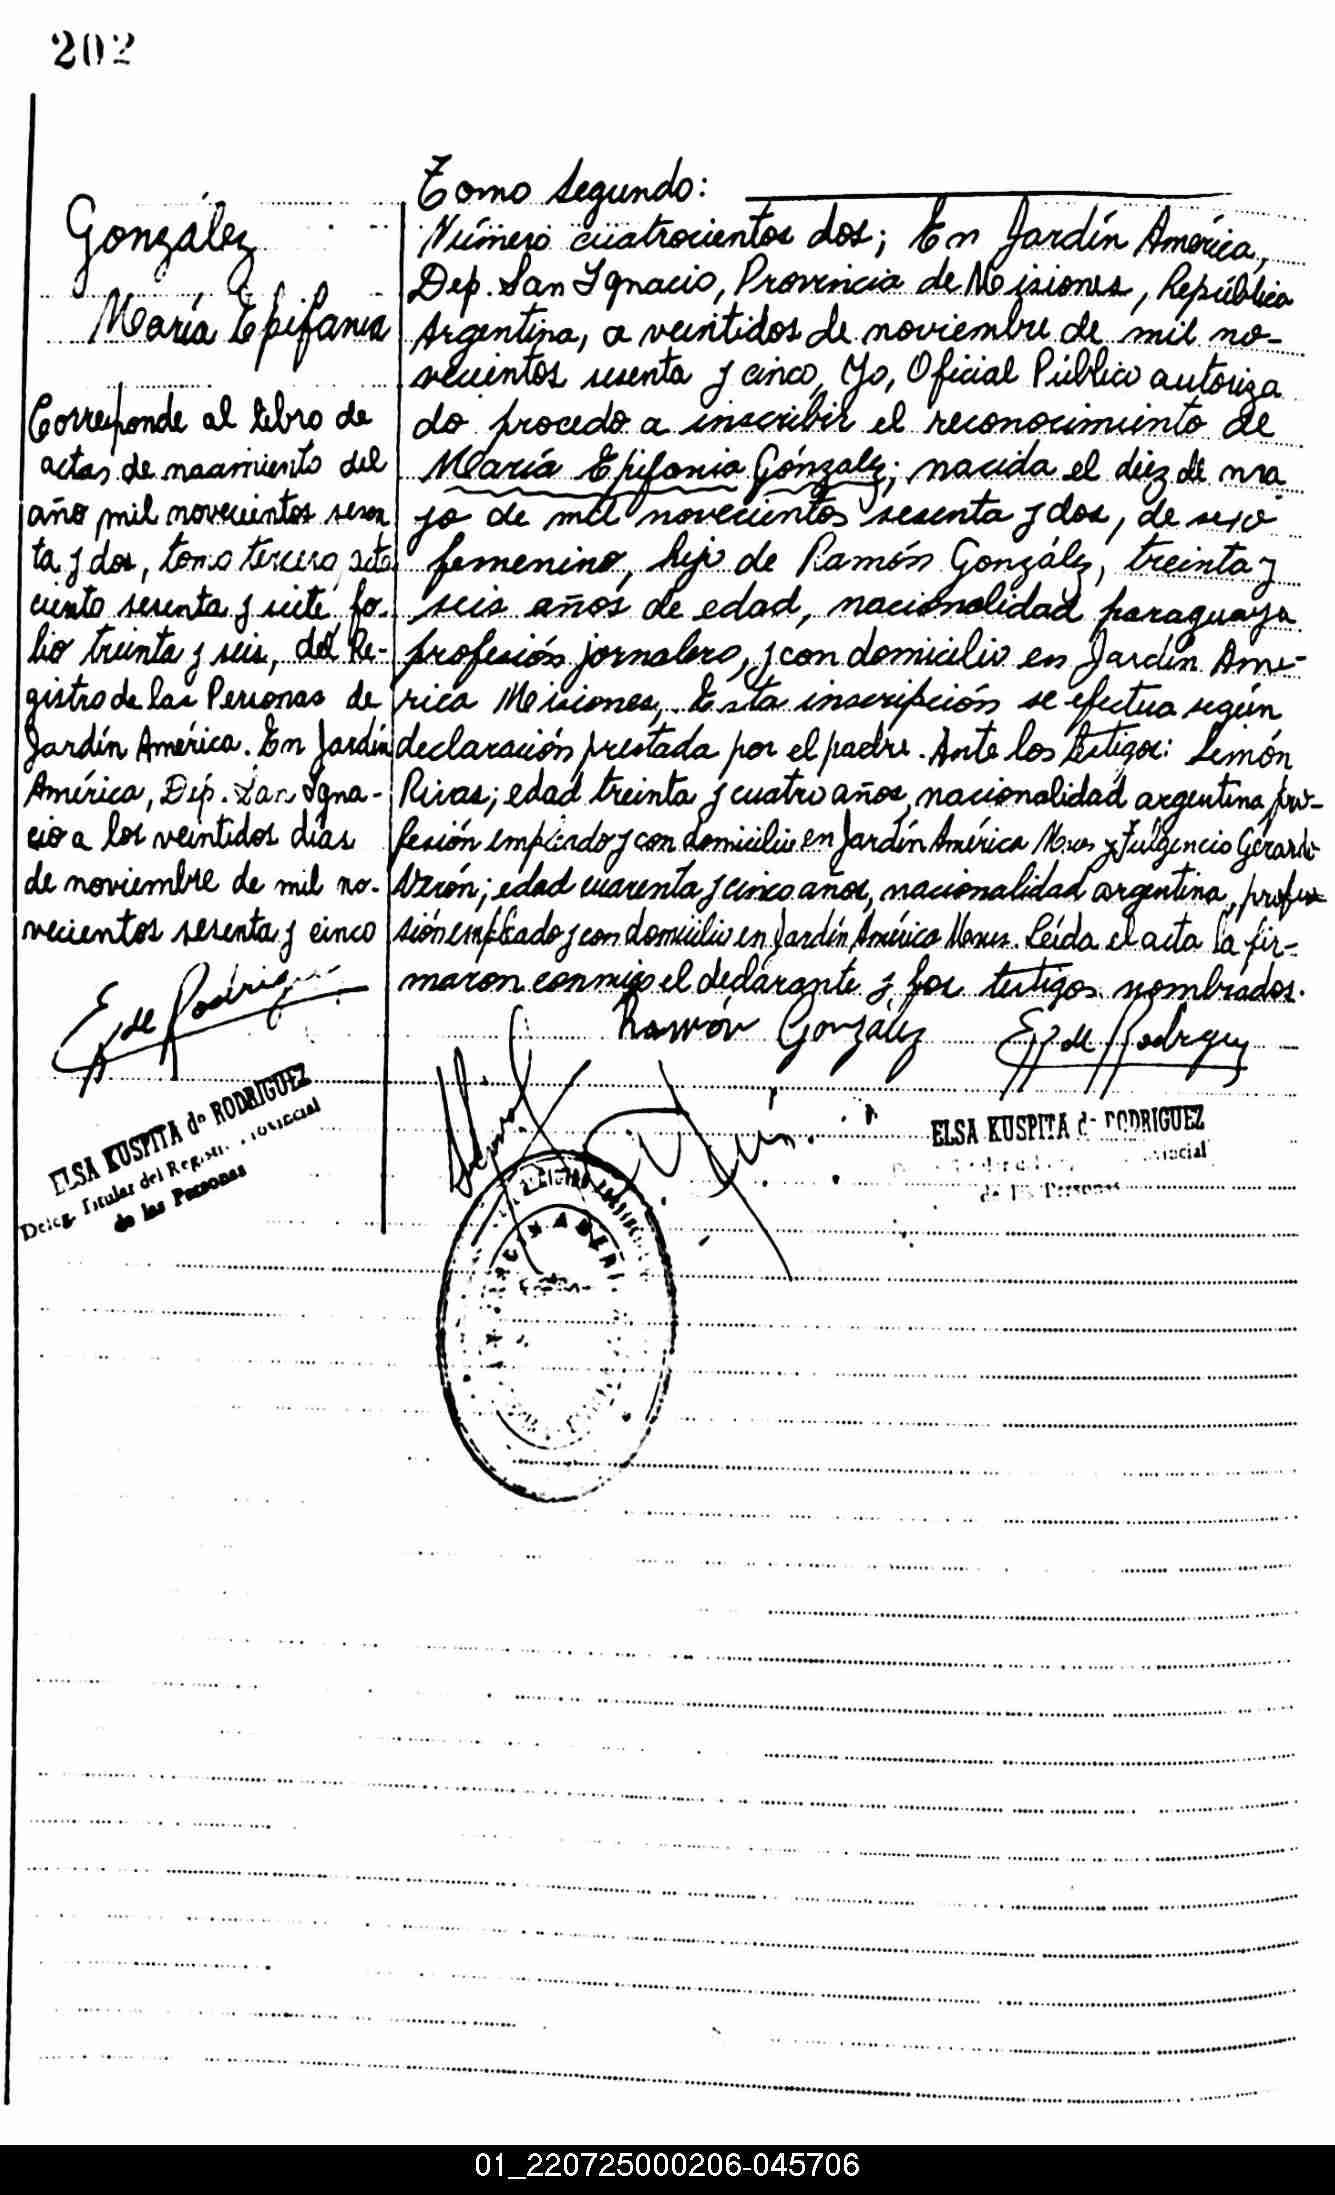 202
González
María Epifania
Corresponde al libro de
actas de nacimiento del
año mil novecientos sesen
ta y dos, tomo tercero, acta
ciento sesenta y siete fo-
lio treinta y seis, del Re-
gistro de las Personas de
Jardín América. En Jardín
América, Dep. San Igna-
cio a los veintidos días
de noviembre de mil no-
vecientos sesenta y cinco
E. de Rodrigu
ELSA KUSPITA de RODRIGUEZ
Deleg. Titular del Registro Provincial
de las Personas
Tomo Segundo:
Número cuatrocientos dos; En Jardín América,
Dep. San Ignacio, Provincia de Misiones, República
Argentina, a veintidos de noviembre de mil no-
vecientos sesenta y cinco, Yo, Oficial Público autoriza
do procedo a inscribir el reconocimiento de
María Epifania Gónzalez; nacida el diez de ma
yo de mil novecientos sesenta y dos, de sexo
femenino, hijo de Ramón González, treinta y
seis años de edad, nacionalidad paraguaya
profesión jornalero, y con domicilio en Jardín Amé-
rica Misiones, Esta inscripción se efectua según
declaración prestada por el padre. Ante los testigos: Simón
Rivas; edad treinta y cuatro años, nacionalidad argentina pro-
fesión empleado y con domicilio en Jardín América Mnes y Fulgencio Gerardo
Verón; edad cuarenta y cinco años, nacionalidad argentina, profe
sión empleado y con domicilio en Jardín América Mnes. Leída el acta la fir-
maron conmigo el declarante y los testigos nombrados.
Ramón González E. de Rodriguez
ELSA KUSPITA de RODRIGUEZ
de las Personas
01_220725000206-045706